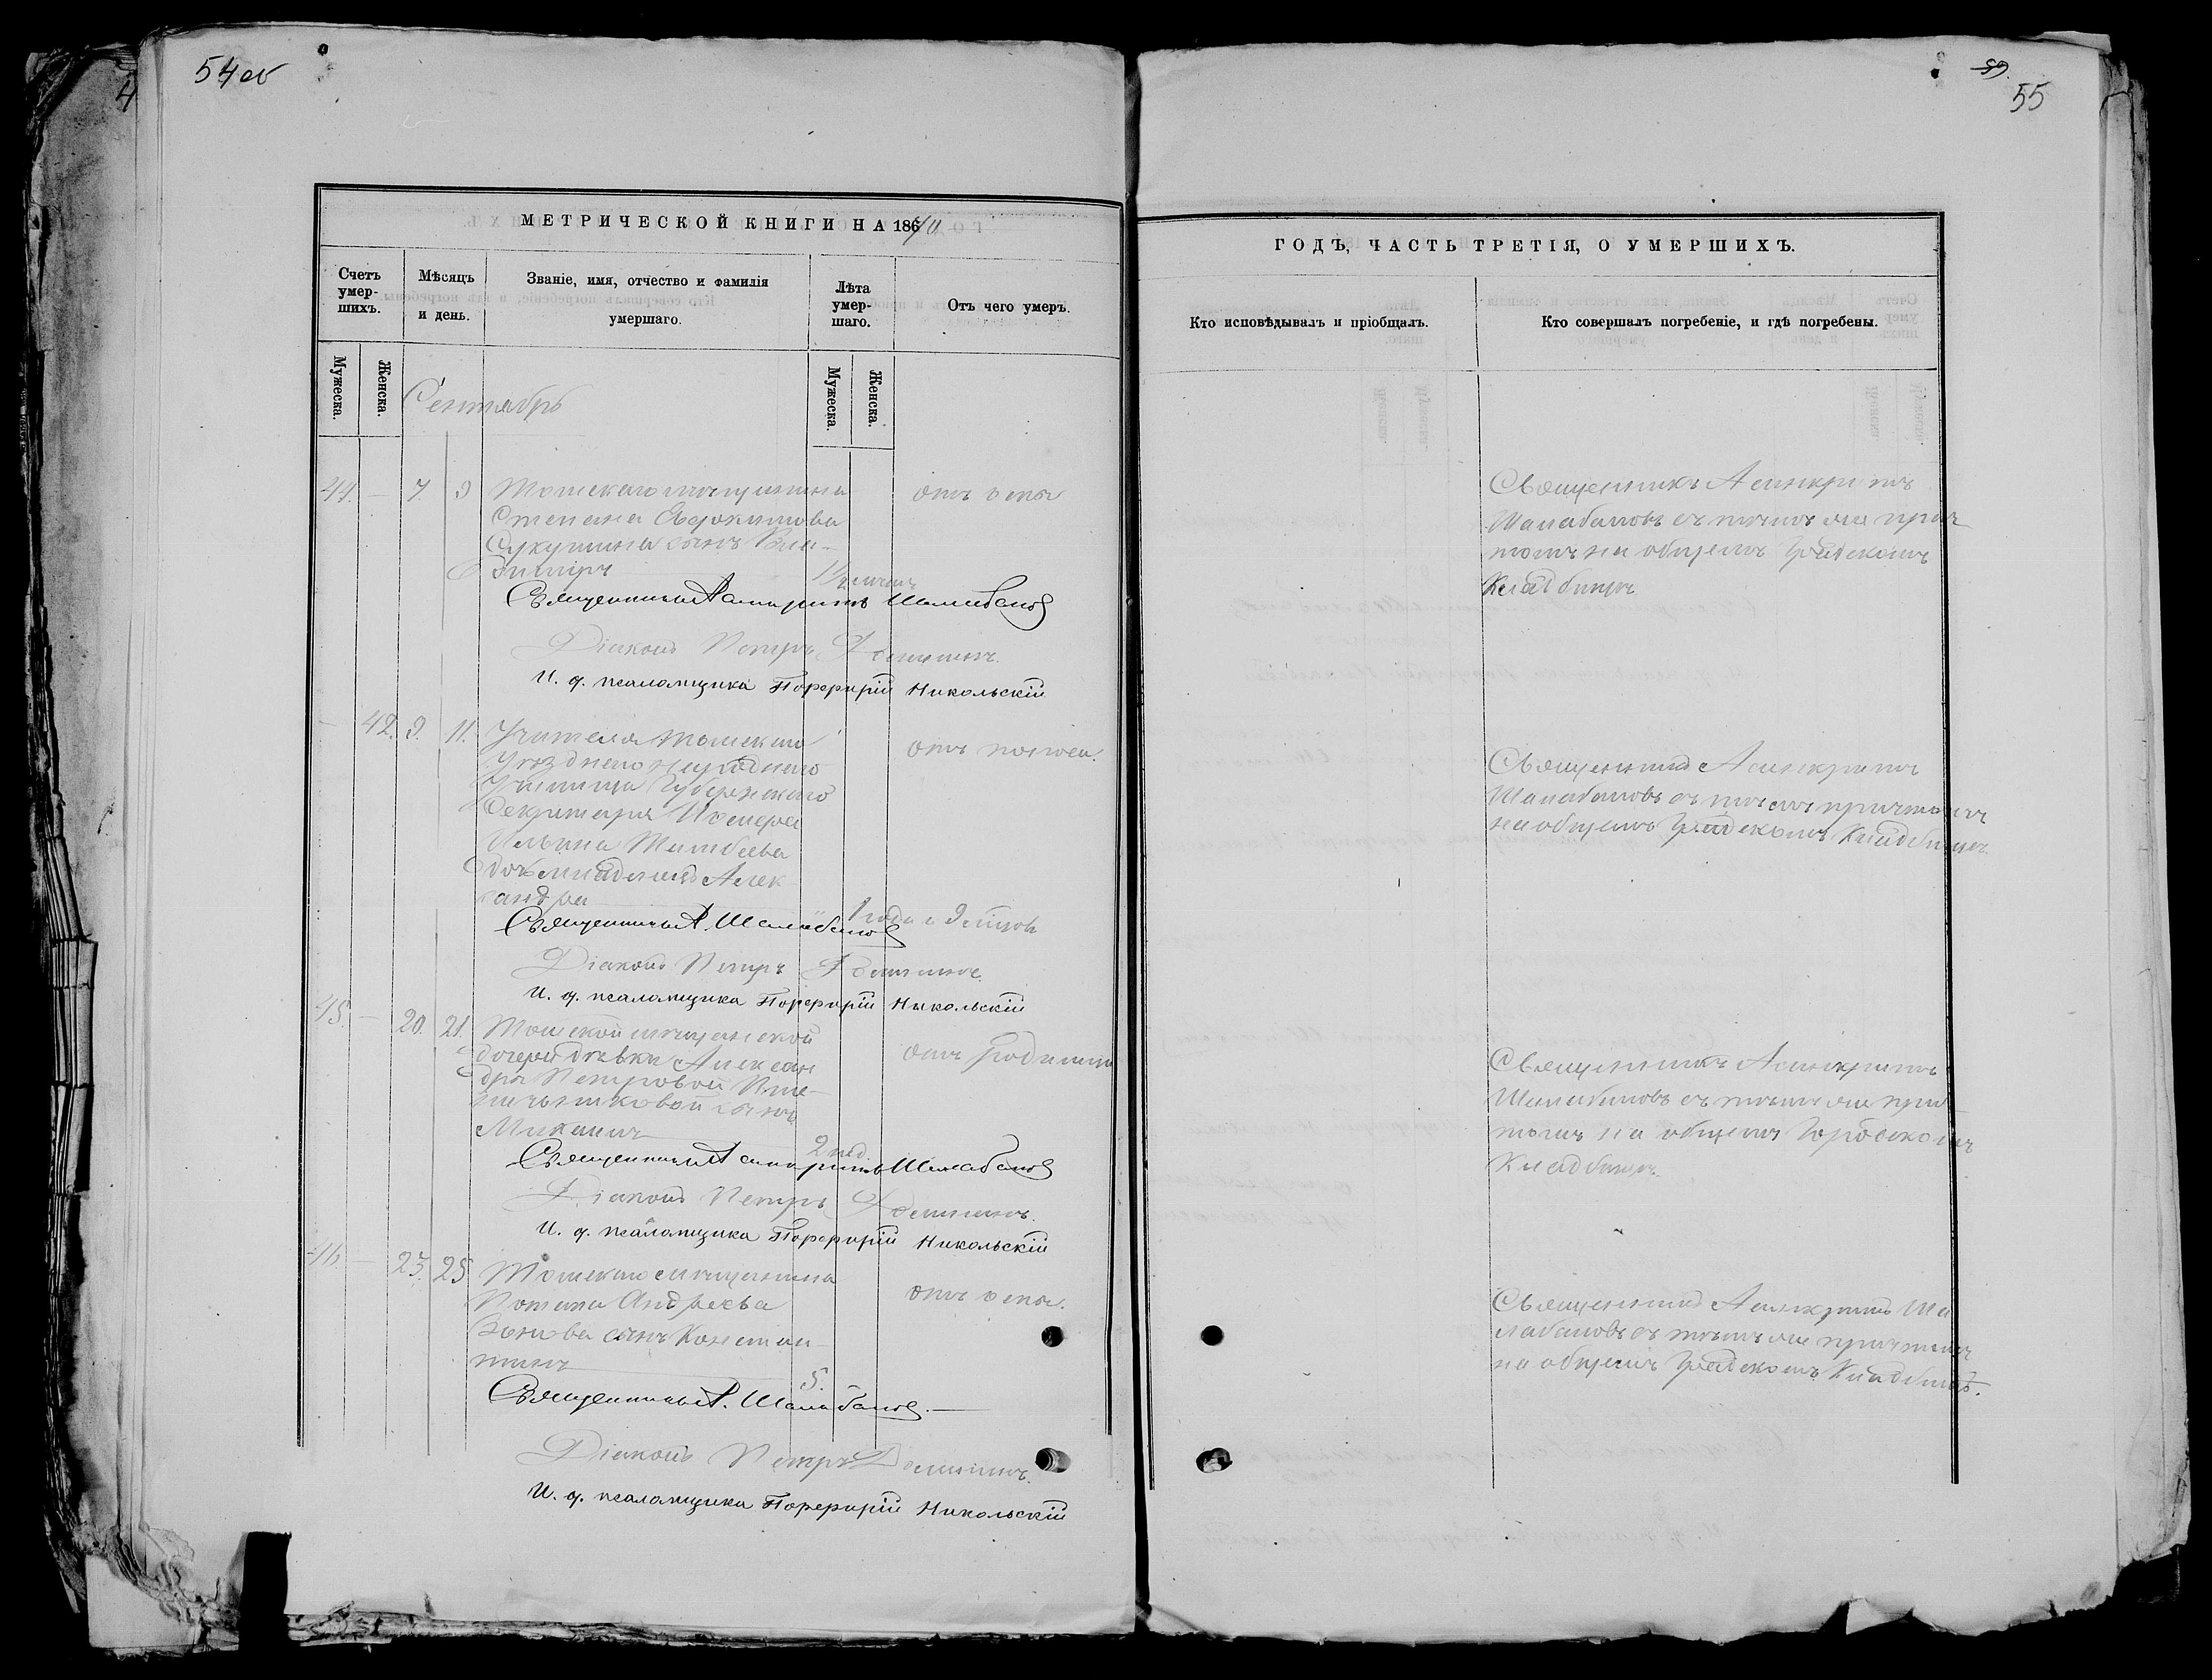 54 об
59.
55
МЕТРИЧЕСКОЙ КНИГИ НА 18670
Счетъ умер-шихъ.
Мѣсяцъ и день.
Званіе, имя, отчество и фамилія умершаго.
Лѣта умер-шаго.
Отъ чего умеръ.
Мужеска.
Женска.
Мужеска.
Женска.
Сентябрь
44. — 7. 9
Томскаго мѣщанина
Степана Евдокимова
сынъ
димiръ
отъ оспы
Священникъ Асинкритъ Шалабановъ
Діаконъ Петръ
И. д. псаломщика Порфирій Никольскій
— 42. 9. 11.
Учителя Томскаго
Уѣзднаго
Училища Губернскаго
Секретаря
Ильина
дочь младенецъ Алек-
сандра
1 года и 9 мѣсяцовъ
отъ поноса.
Священникъ А. Шалабановъ
Діаконъ Петръ
И. д. псаломщика Порфирій Никольскій
45. — 20. 21.
Томской мѣщанской
дочери дѣвки Алексан
дры Петровой Пше-
ничниковой сынъ
Михаилъ
2 нед.
отъ родимца
Священникъ Асинкритъ Шалабановъ
Діаконъ Петръ
И. д. псаломщика Порфирій Никольскій
46 — 23. 25
Томскаго мѣщанина
Потапа Андреева
сынъ Констан-
тинъ
5.
отъ оспы.
Священникъ А. Шалабановъ.
Діаконъ Петръ
И. д. псаломщика Порфирій Никольскій
ГОДЪ, ЧАСТЬ ТРЕТІЯ, О УМЕРШИХЪ.
Кто исповѣдывалъ и пріобщалъ.
Кто совершалъ погребеніе, и гдѣ погребены.
Священникъ Асинкритъ
Шалабановъ съ тѣмъ же прич-
томъ на общемъ Градскомъ
Кладбищѣ
Священникъ Асинкритъ
Шалабановъ съ тѣмъ же причтомъ
на общемъ Градскомъ Кладбищѣ.
Священникъ Асинкритъ
Шалабановъ съ тѣмъ же прич-
томъ на общемъ Городскомъ
Кладбищѣ.
Священникъ Асинкритъ Ша
лабановъ съ тѣмъ же причтомъ
на общемъ Градскомъ Кладбищѣ.